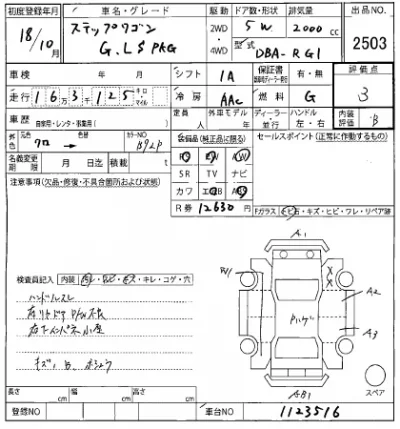 初度登録年月
車名・グレード
駆動
ドア数・形状
排気量
出品NO
18/10月
ステップワゴン
G.LS PKG
2WD
4WD
5W
2000cc
型式
DBA-RG1
2503
車検 年 月
シフト
1A
保証書
有・無
評価点
3
走行
163千125
キロ
マイル
冷房
AAC
燃料
G
内装評価
B
車歴
自家用・レンタ・事業用( )
定員
人
外車モデル
年
ディーラー
並行
ハンドル
左・右
外色
元色
クロ
色替
カラーNO
B92P
装備品(純正品に限る)
セールスポイント(正常に作動するもの)
PS
PW
AW
SR
TV
ナビ
カワ
エアB
ABS
名義変更期限
月 日迄
積載
t
R券
12630円
注意事項(欠品・修復・不具合箇所および状態)
Fガラス
ヒビ石・キズ・ヒビ・ワレ・リペア跡
A1
A2
A3
AB1
検査員記入
内装
キレ・コゲ・穴
ハンドルスレ
キズ、B、
長さ
cm
幅
cm
高さ
cm
スペア
登録NO
車台NO
1123516